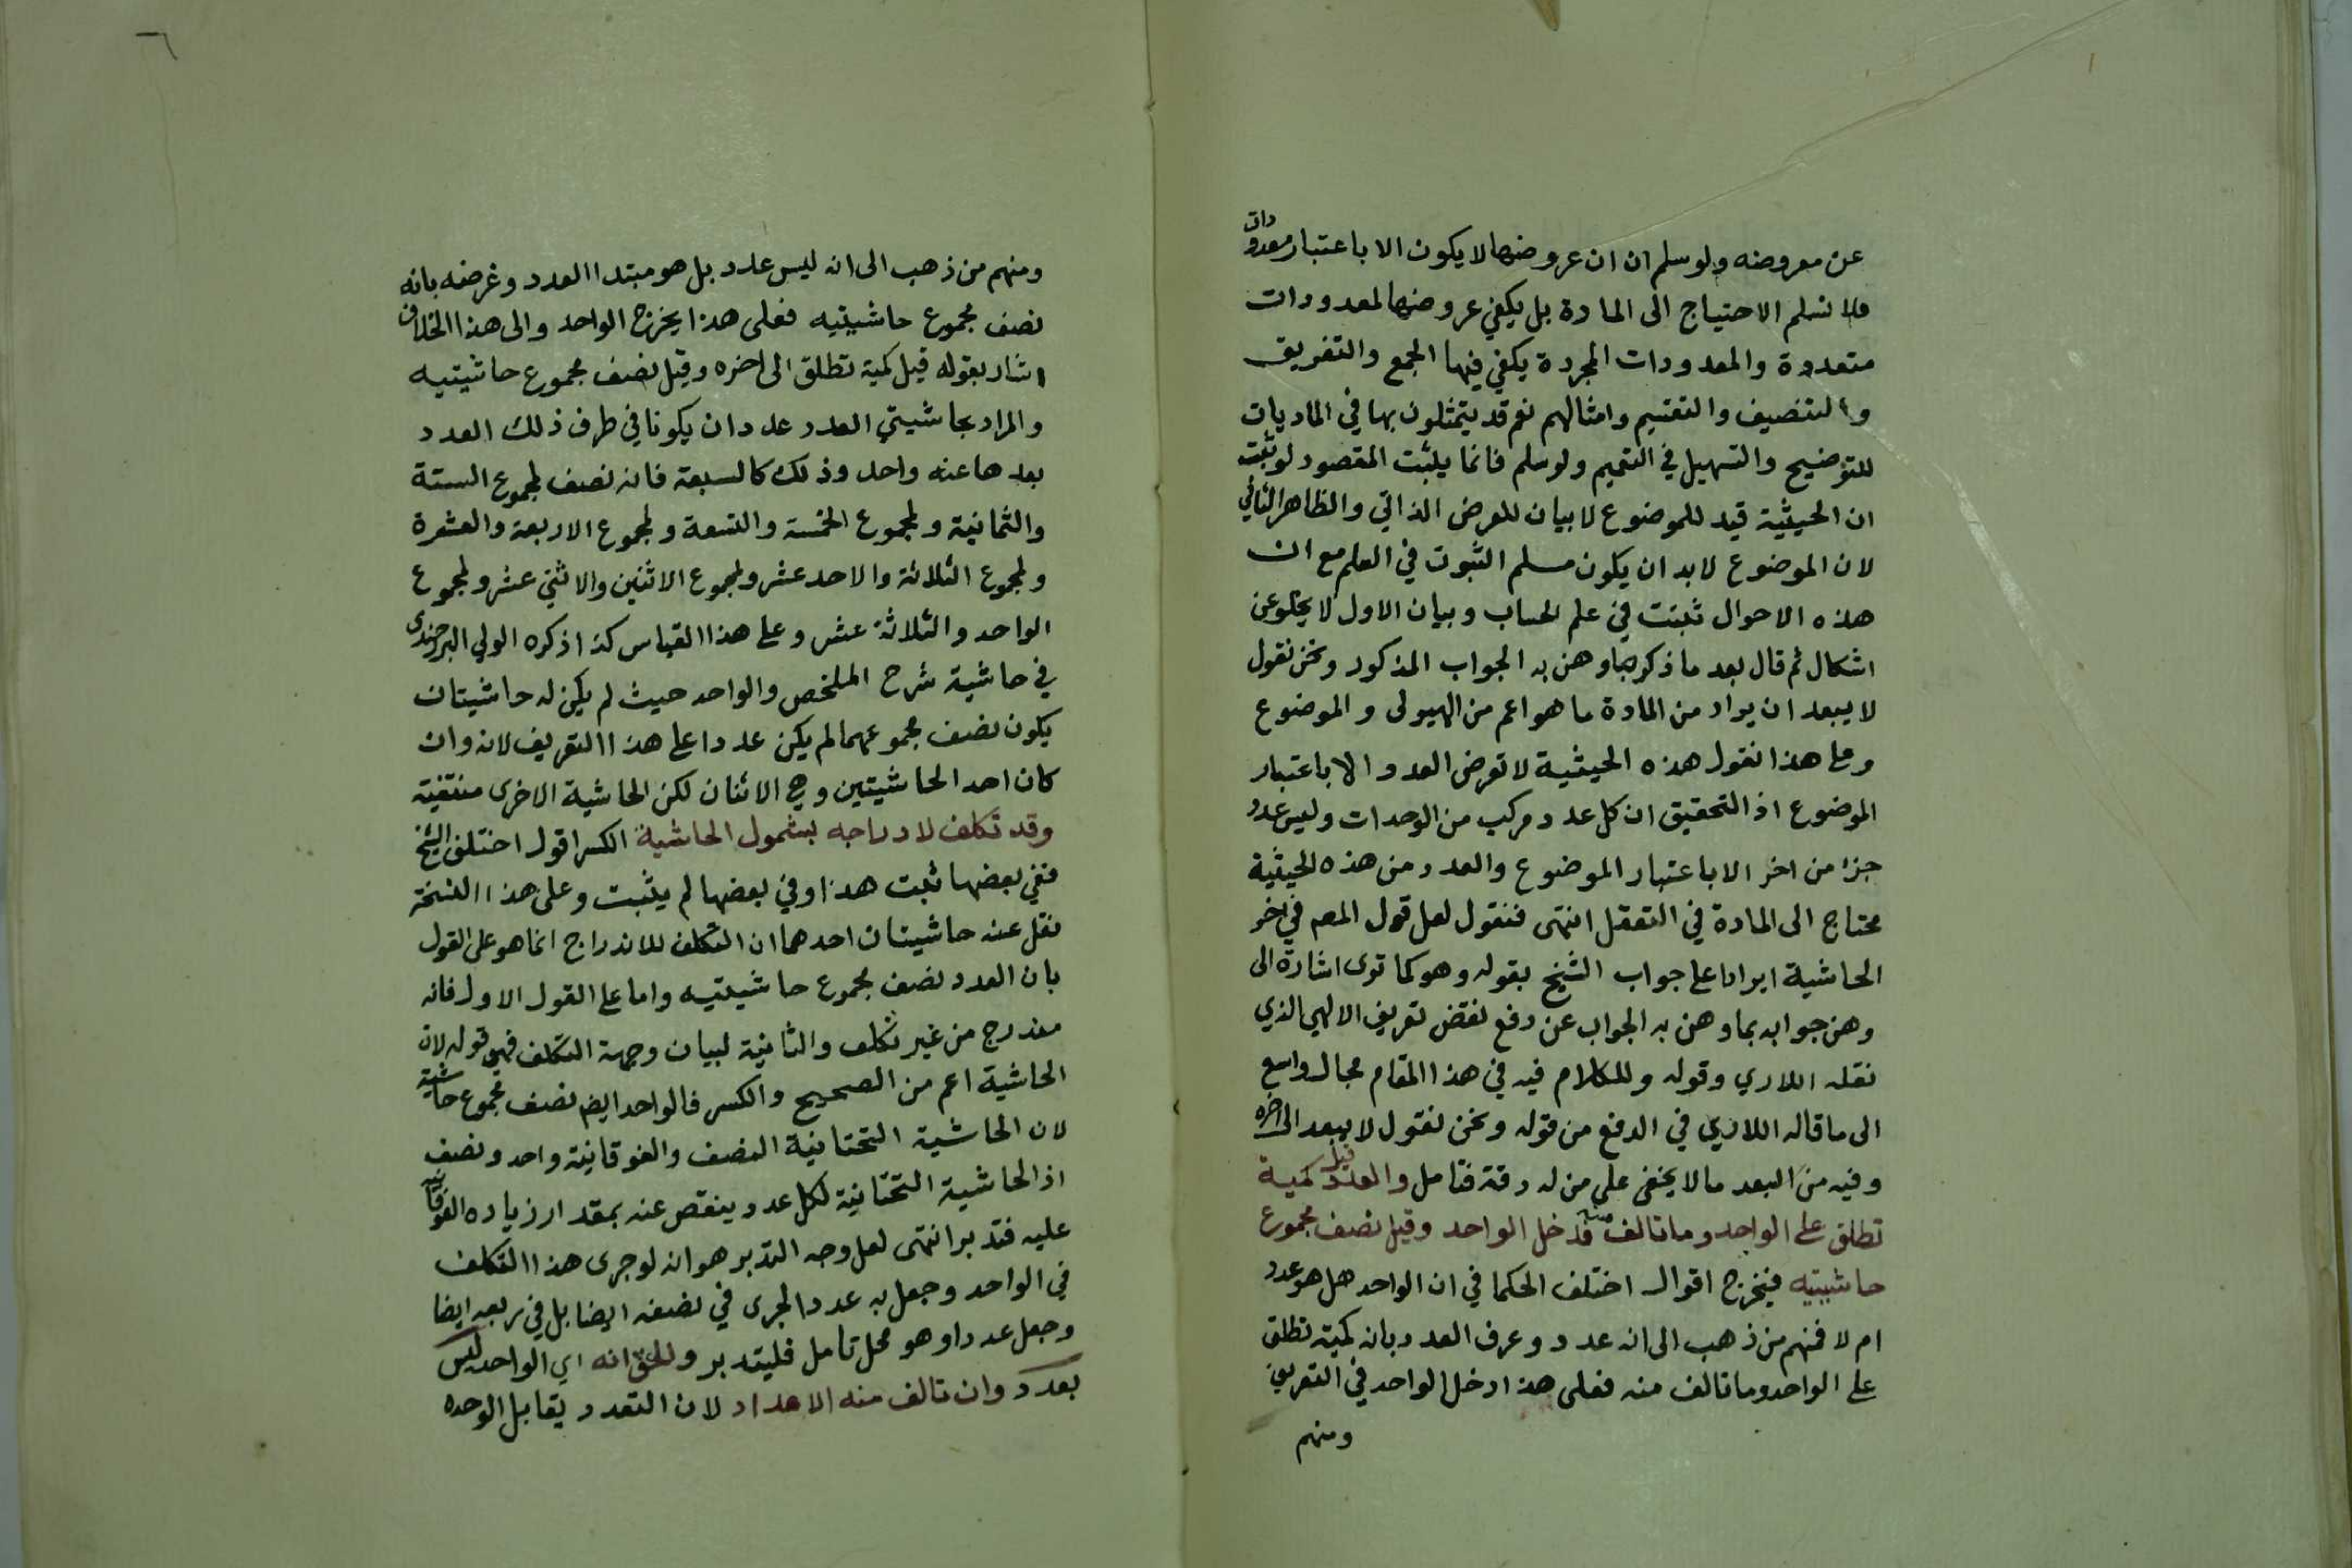 عن معروضه ولو سلم ان ان عروضها لا يكون الا باعتبار معدودات
فلا نسلم الاحتياج الى المادة بل يكفي عروضها لمعدودات
متعددة والمعدودات المجردة يكفي فيها الجمع والتفريق
والتنصيف والتقسيم وامثالهم نعم قد يتمثلون بها في الماديات
للتوضيح والتسهيل في التتميم ولو سلم فانما يثبت المقصود لو ثبت
ان الحيثية قيد للموضوع لا بيان للعرض الذاتي والظاهر الثاني
لان الموضوع لا بد ان يكون مسلم الثبوت في العلم مع ان
هذه الاحوال تثبت في علم الحساب وبيان الاول لا يخلو عن
اشكال ثم قال بعد ما ذكر بما وهن به الجواب المذكور ونحن نقول
لا يبعد ان يراد من المادة ما هو اعم من الهيولى والموضوع
وعلى هذا نقول هذه الحيثية لا تعرض العدد الا باعتبار
الموضوع اذ التحقيق ان كل عدد مركب من الوحدات وليس عدد
جزء من اخر الا باعتبار الموضوع والعدد من هذه الحيثية
محتاج الى المادة في التعقل انتهى فنقول لعل قول المصه في اخر
الحاشية ايرادا على جواب الشيخ بقوله وهو كما ترى اشارة الى
وهن جوابه بما وهن به الجواب عن دفع نقض تعريف الالهي الذي
نقله اللاري وقوله وللكلام فيه في هذا المقام مجال واسع
الى ما قاله اللاري في الدفع من قوله ونحن نقول لا يبعد الى اخره
وفيه من البعد ما لا يخفى على من له دقة فتامل والعدد قيل كمية
تطلق على الواحد وما تالف منه فدخل الواحد وقيل نصف مجموع
حاشيتيه فيخرج اقول اختلف الحكما في ان الواحد هل هو عدد
ام لا فمنهم من ذهب الى انه عدد وعرف العدد بانه كمية تطلق
على الواحد وما تالف منه فعلى هذا ادخل الواحد في التعريف
ومنهم
ومنهم من ذهب الى انه ليس عدد بل هو مبتدا العدد وعرضه بانه
نصف مجموع حاشيتيه فعلى هذا يخرج الواحد والى هذا الخلاف
اشار بقوله قيل كمية تطلق الى اخره وقيل نصف مجموع حاشيتيه
والمراد بحاشيتي العدد عددان يكونا في طرف ذلك العدد
بعدها عنه واحد وذلك كالسبعة فانه نصف لمجموع الستة
والثمانية ولمجموع الخمسة والتسعة ولمجموع الاربعة والعشرة
ولمجموع الثلاثة والاحد عشر ولمجموع الاثنين والاثني عشر ولمجموع
الواحد والثلاثة عشر وعلى هذا القياس كذا ذكره الولي البرجندى
في حاشية شرح الملخص والواحد حيث لم يكن له حاشيتان
يكون نصف مجموعهما لم يكن عددا على هذا التعريف لانه وان
كان احد الحاشيتين وهي الاثنان لكن الحاشية الاخرى منتفية
وقد تكلف لادراجه بشمول الحاشية الكسر اقول اختلف النسخ
ففي بعضها ثبت هذا وفي بعضها لم يثبت وعلى هذا النسخة
نقل عنه حاشيتان احدهما ان التكلف للاندراج انما هو على القول
بان العدد نصف مجموع حاشيتيه واما على القول الاول فانه
مندرج من غير تكلف والثانية لبيان وجهة التكلف فهي قوله لان
الحاشية اعم من الصحيح والكسر فالواحد ايضه نصف مجموع حاشيتيه
لان الحاشية التحتانية النصف والفوقانية واحد ونصف
اذ الحاشية التحتانية لكل عدد ينقص عنه بمقدار زياده الفوقانية
عليه فتدبر انتهى لعل وجه التدبر هو انه لو جرى هذا التكلف
في الواحد وجعل به عددا لجرى في نصفه ايضا بل في ربعه ايضا
وجعل عددا وهو محل تامل فليتدبر والحق انه اي الواحد ليس
بعدد وان تالف منه الاعداد لان التعدد يقابل الوحده